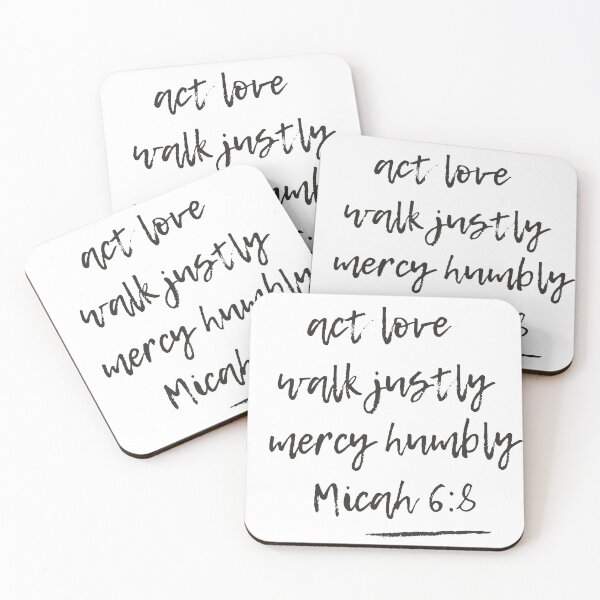 act love
walk justly
act love
walk justly
mercy humbly
act love
walk justly
mercy humbly
Micah
act love
walk justly
mercy humbly
Micah 6:8